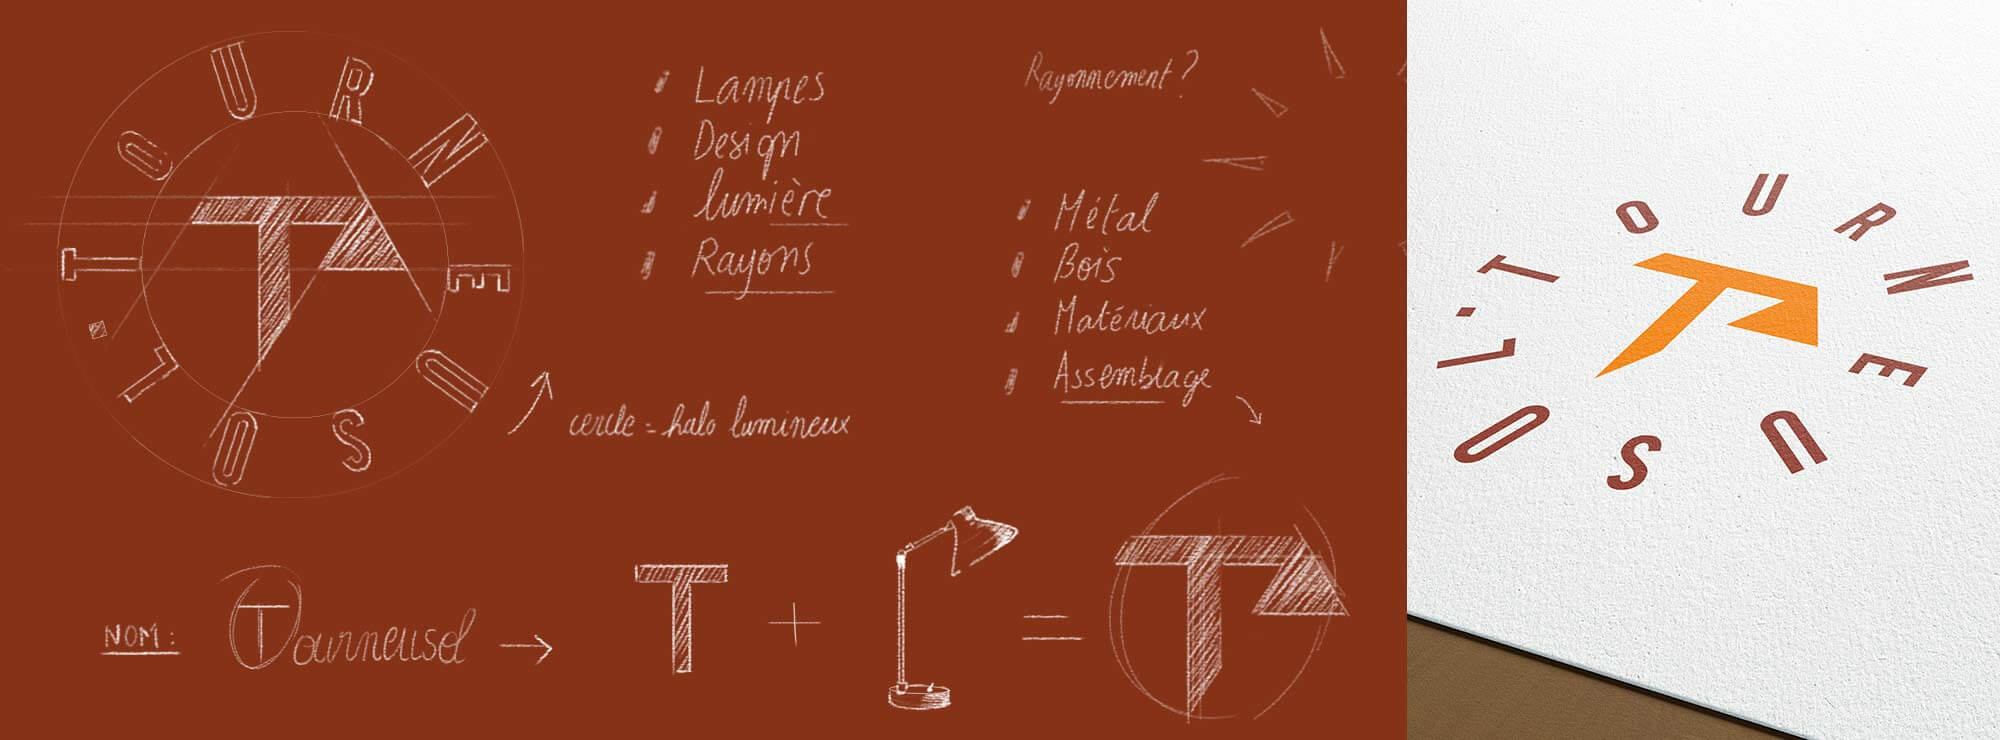 TOURNEUSOL.
T
Lampes
Design
lumière
Rayons
Rayonnement ?
Métal
Bois
Matériaux
Assemblage
cercle = halo lumineux
NOM : Tourneusol → T + = T
TOURNEUSOL.
T